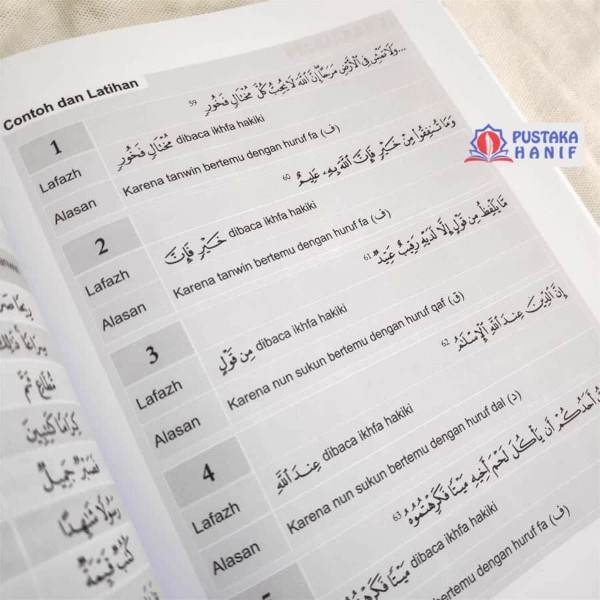 Contoh dan Latihan
1
...وَلَا تَمْشِ فِى الْأَرْضِ مَرَحًا إِنَّ اللَّهَ لَا يُحِبُّ كُلَّ مُخْتَالٍ فَخُورٍ 59
Lafazh
مُخْتَالٍ فَخُورٍ dibaca ikhfa hakiki
Alasan
Karena tanwin bertemu dengan huruf fa (ف)
2
وَمَا تُنفِقُوا مِنْ خَيْرٍ فَإِنَّ اللَّهَ بِهِ عَلِيمٌ 60
Lafazh
خَيْرٍ فَإِنَّ dibaca ikhfa hakiki
Alasan
Karena tanwin bertemu dengan huruf fa (ف)
3
مَا يَلْفِظُ مِن قَوْلٍ إِلَّا لَدَيْهِ رَقِيبٌ عَتِيدٌ 61
Lafazh
مِن قَوْلٍ dibaca ikhfa hakiki
Alasan
Karena nun sukun bertemu dengan huruf qaf (ق)
4
إِنَّ الدِّينَ عِندَ اللَّهِ الْإِسْلَمُ 62
Lafazh
عِندَ اللَّهِ dibaca ikhfa hakiki
Alasan
Karena nun sukun bertemu dengan huruf dal (د)
5
أَحَدُكُمْ أَن يَأْكُلَ لَحْمَ أَخِيهِ مَيْتًا فَكَرِهْتُمُوهُ 63
مَيْتًا فَكَرِهْتُمُوهُ dibaca ikhfa hakiki
bertemu dengan huruf fa (ف)
PUSTAKA
HANIF
كِرَامًا كَتِبِينَ
فَصَبْرٌ جَمِيلٌ
رَسُولًا شَهِدًا
كُتُبٌ قَيِّمَةٌ